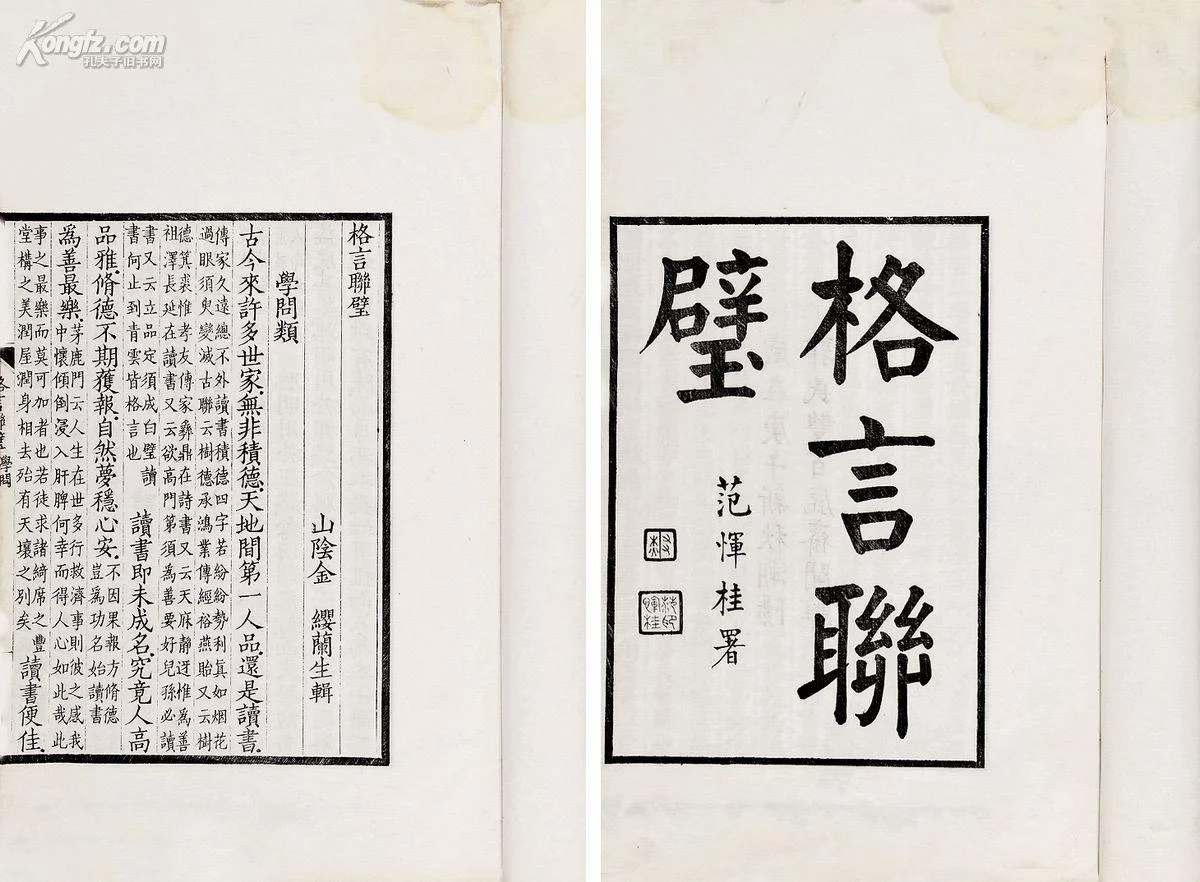 Kongfz.com
孔夫子旧书网
格言聯
璧
范惲桂署
格言聯璧
山陰金 纓蘭生輯
學問類
古今來許多世家、無非積德、天地間第一人品、還是讀書、
傳家久遠總不外讀書積德四字若紛紛勢利真如烟花
過眼須臾變滅古聯云樹德承鴻業傳經裕燕貽又云樹
德箕裘惟孝友傳家彝鼎在詩書又云天庥靜迓惟為善
祖澤長延在讀書又云欲高門第須為善要好兒孫必讀
書又云立品定須成白璧讀
書何止到青雲皆格言也
讀書即未成名、究竟人高
品雅、脩德不期獲報、自然夢穩心安、
不因果報方脩德
豈為功名始讀書
為善最樂、
茅鹿門云人生在世多行救濟事則彼之感我
中懷傾倒浸入肝脾何幸而得人心如此哉此
事之最樂而莫可加者也若徒求諸綺席之豐
堂構之美潤屋潤身相去殆有天壤之列矣
讀書便佳、
格言聯璧 學問